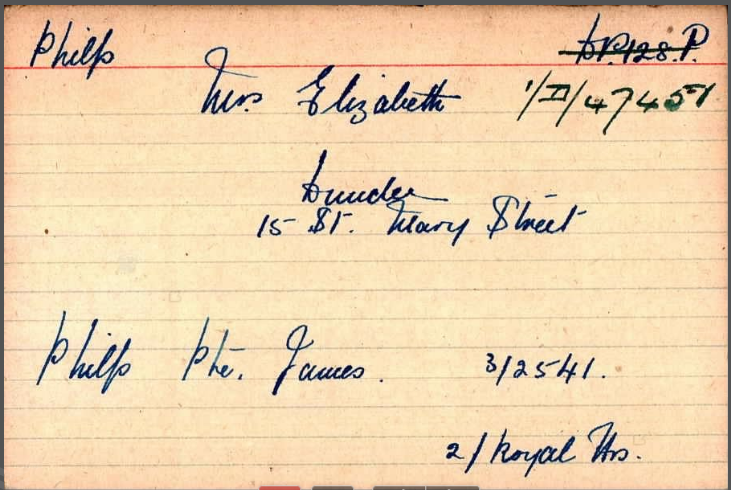 Philp D.P.128.P.
Mrs. Elizabeth 1/II/47457
Dundee
15 St. Mary Street
Philp Pte. James. 3/2541.
2/Royal Hrs.